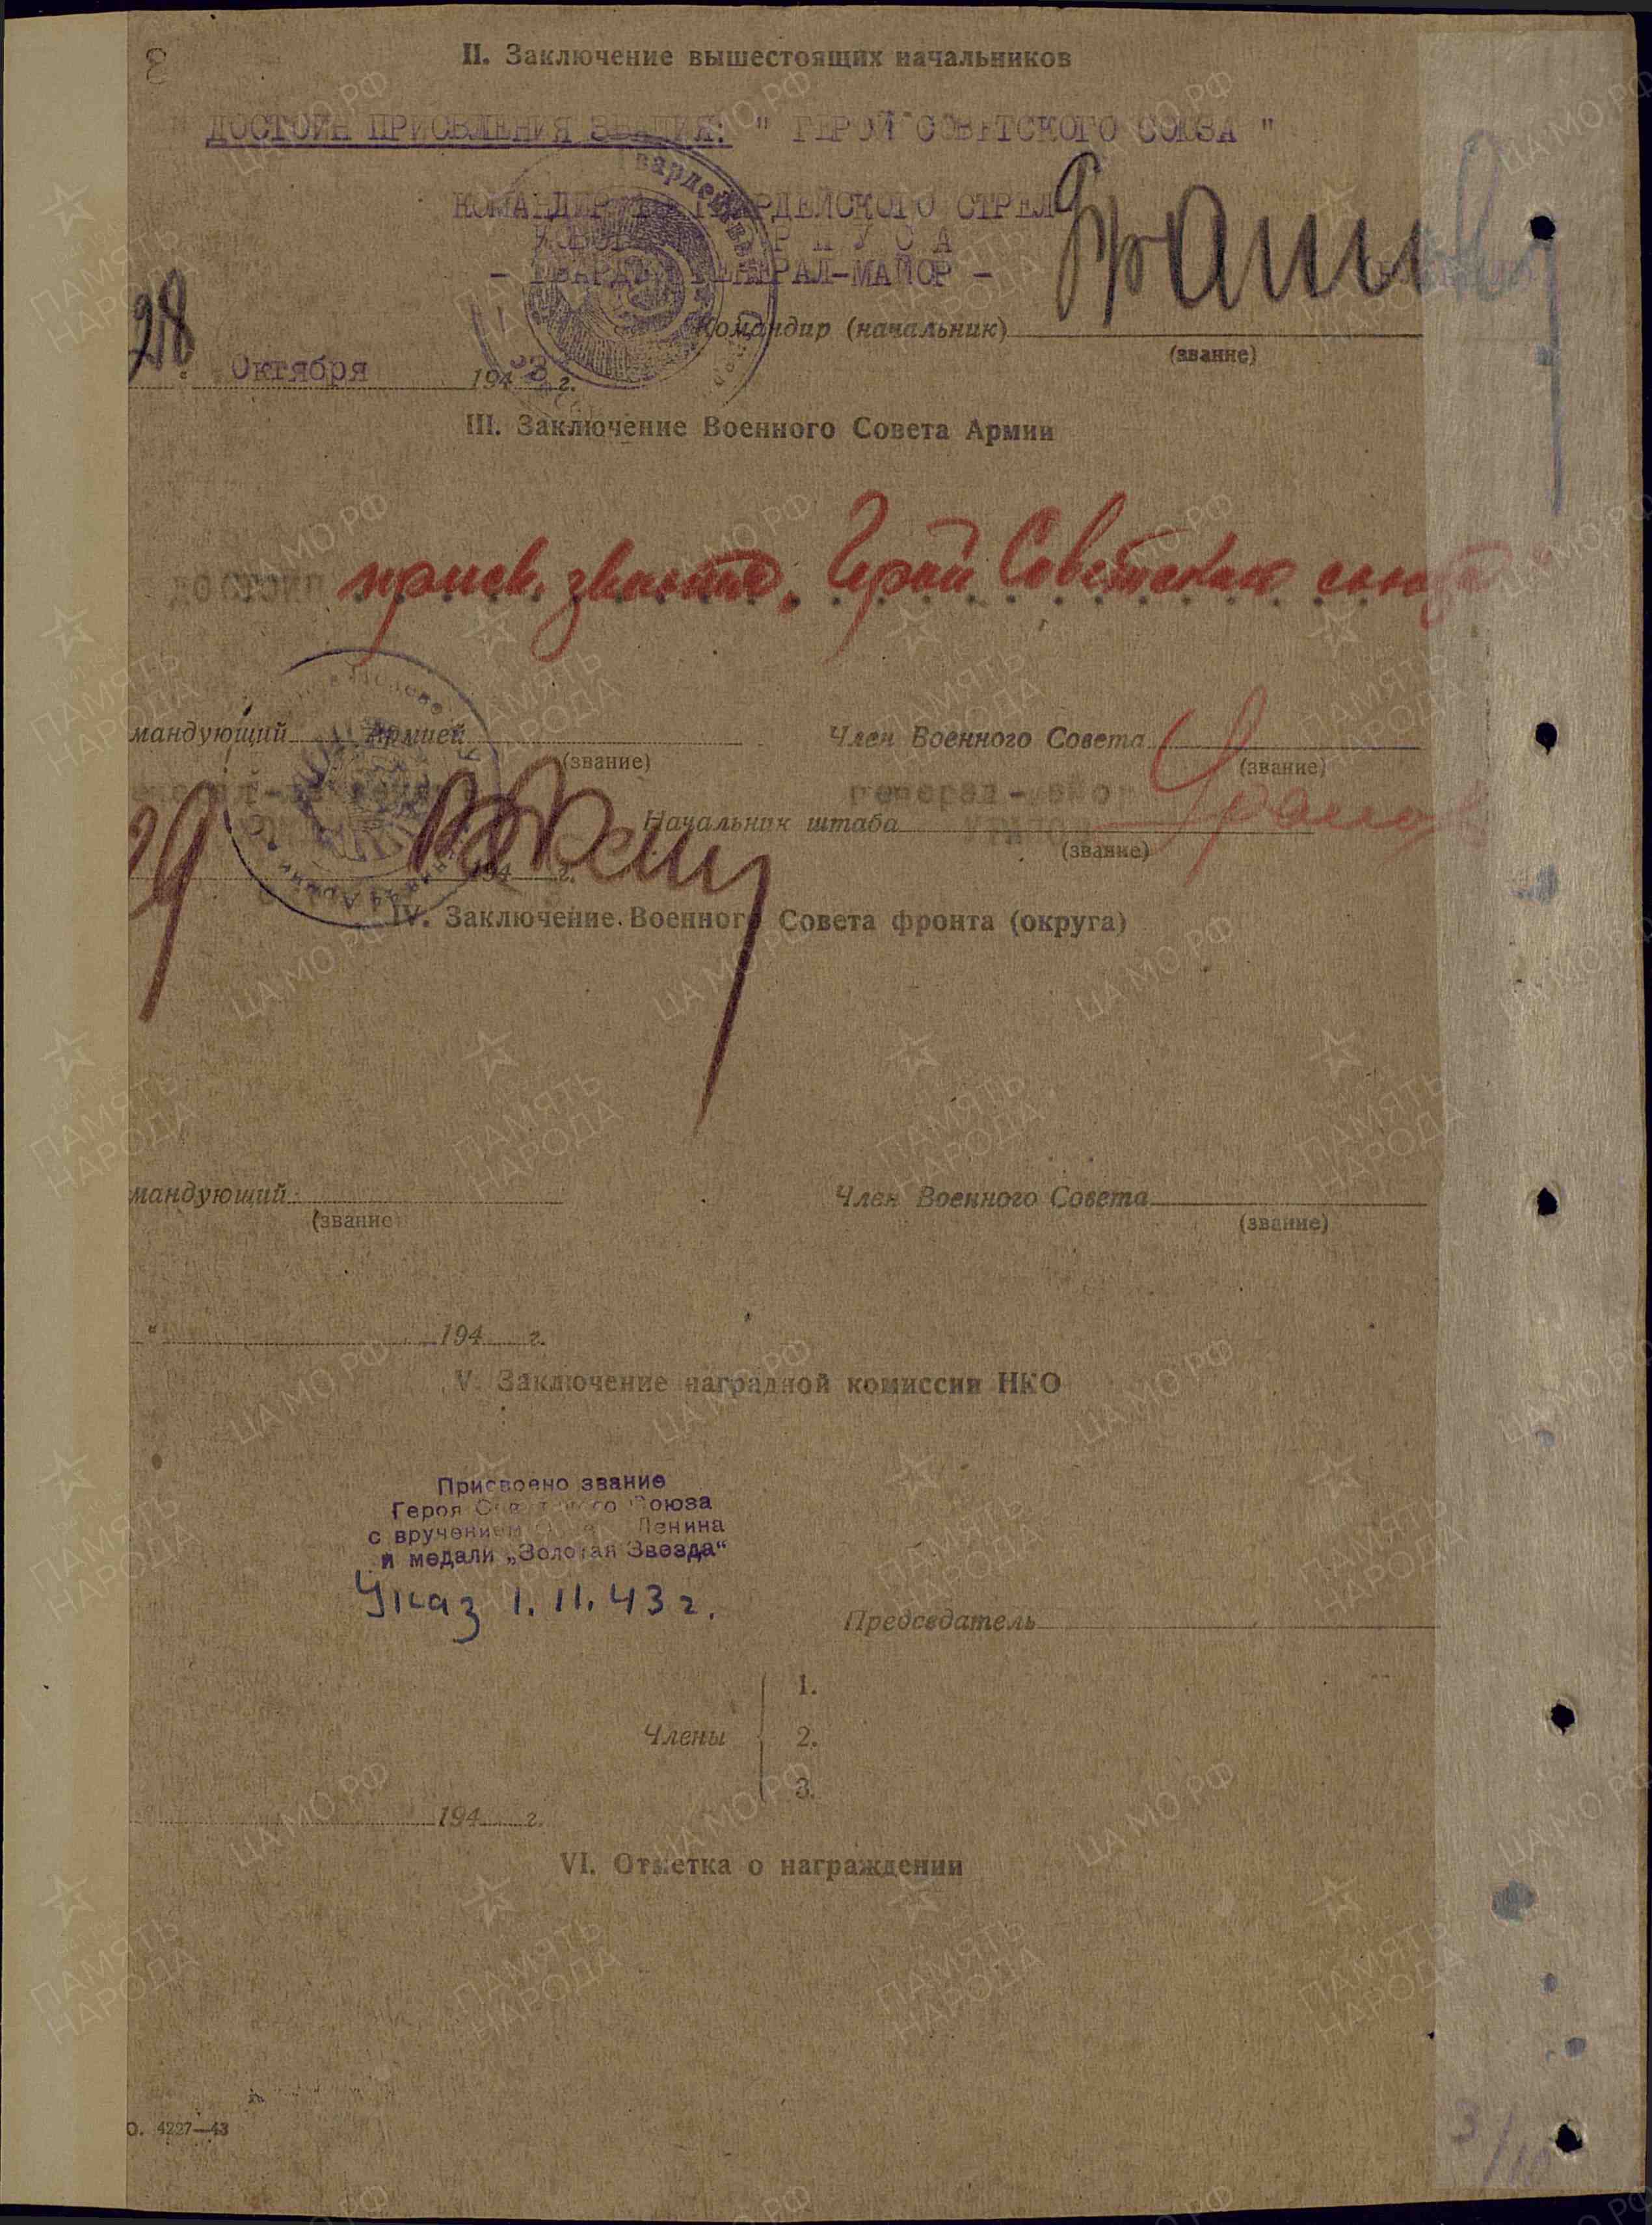 II. Заключение вышестоящих начальников
ДОСТОИН ПРИСВЛЕНИЯ ЗВАНИЯ: " ГЕРОЙ СОВЕТСКОГО СОЮЗА "
КОМАНДИР ГВАРДЕЙСКОГО СТРЕЛ
- ГВАРДИИ ГЕНЕРАЛ-МАЙОР -
Командир (начальник)
(звание)
28 Октября 1943 г.
III. Заключение Военного Совета Армии
достоин присв. звания "Герой Советского союза"
мандующий Армией
(звание)
Член Военного Совета
(звание)
генерал-майор
Начальник штаба
(звание)
29 194 г.
IV. Заключение Военного Совета фронта (округа)
мандующий
(звание
Член Военного Совета
(звание)
" 194 г.
V. Заключение наградной комиссии НКО
Присвоено звание
Героя Советского Союза
с вручением Ленина
и медали „Золотая Звезда“
Указ 1.11.43 г.
Председатель
Члены
1.
2.
3.
194 г.
VI. Отметка о награждении
О. 4227—43
3/10
ПАМЯТЬ НАРОДА
ЦА МО РФ